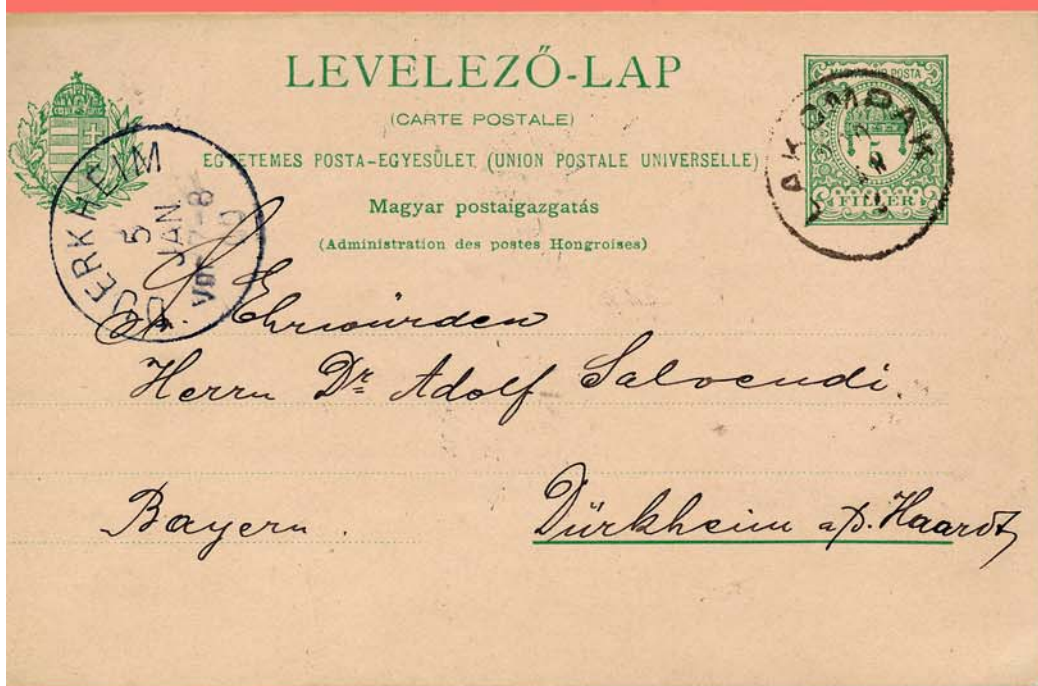 LEVELEZŐ-LAP
(CARTE POSTALE)
EGYETEMES POSTA-EGYESÜLET (UNION POSTALE UNIVERSELLE)
Magyar postaigazgatás
(Administration des postes Hongroises)
MAGYAR KIR. POSTA
FILLÉR
LAKOMPAK
DUERKHEIM
5
JAN
Vor. 7-8
Ehrwürden
Herrn Dr. Adolf Salvendi.
Bayern.
Dürkheim a/d. Haardt